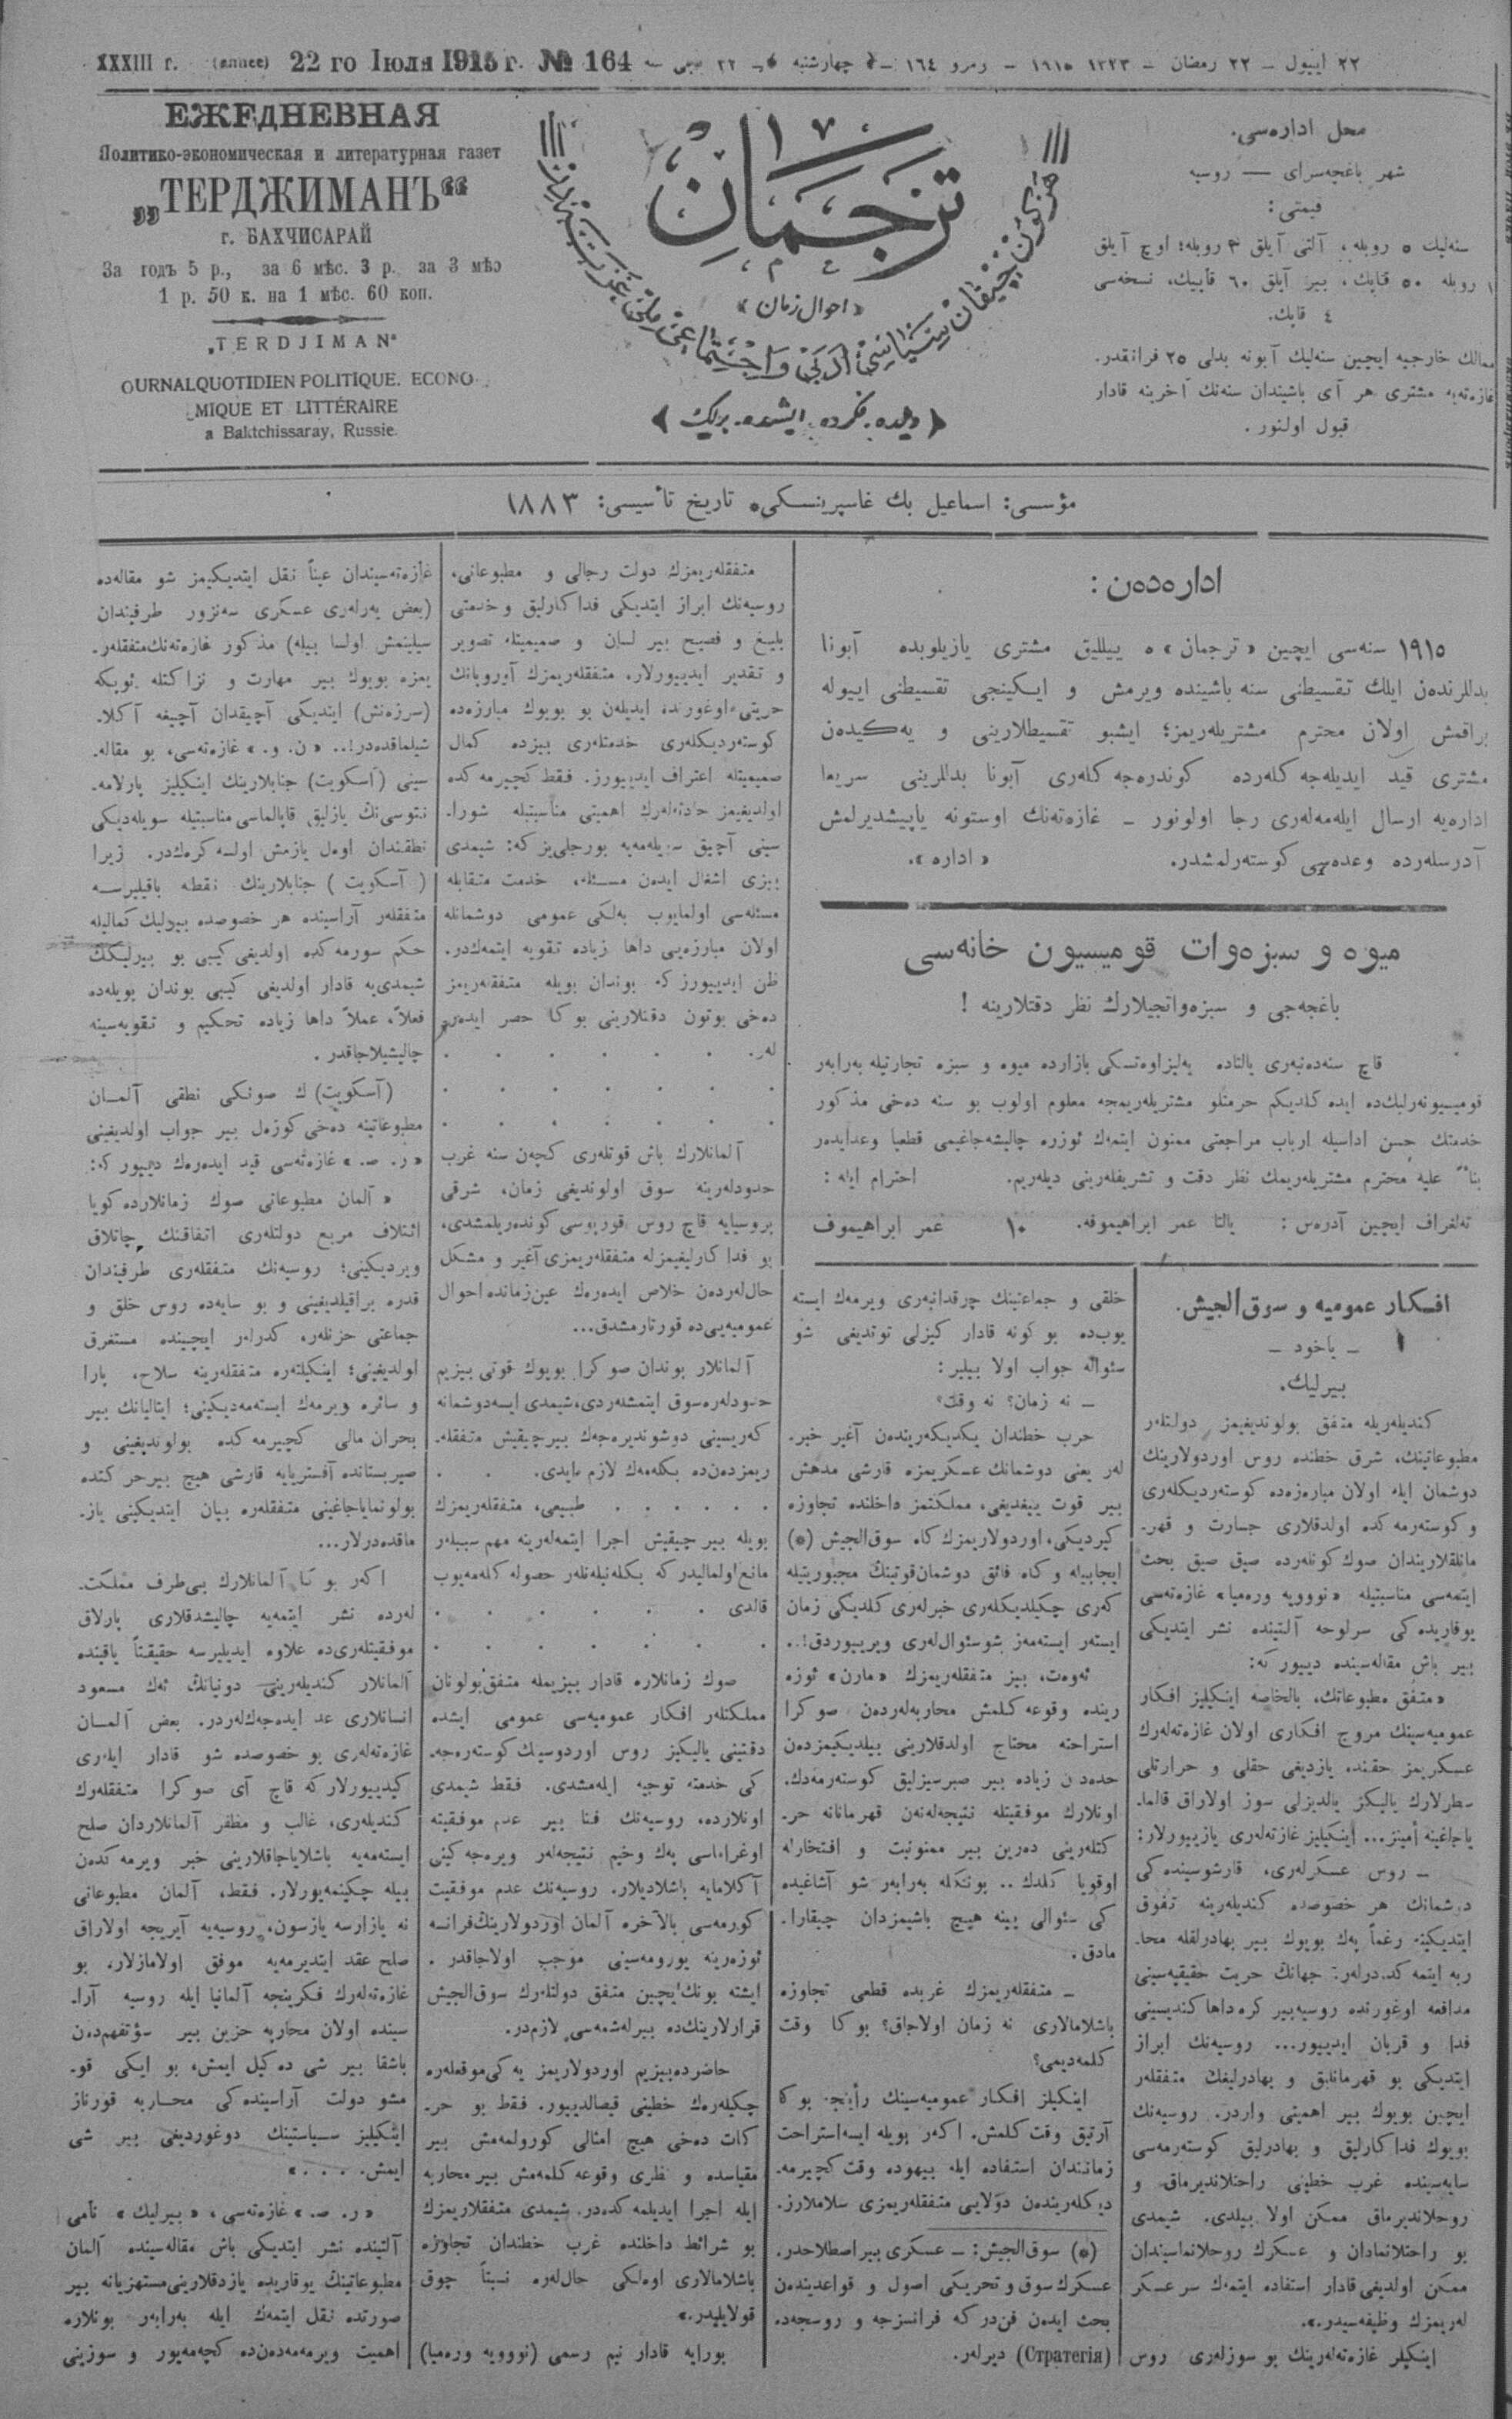 XXXIII г. (annee) 22 го Іюля 1915 г. № 164
٢٢ ایيول ــ ٢٢ رمضان ــ ١٣٣٣ ١٩١٥ ــ رمرو ١٦٤ ــ چهارشنبه
ЕЖЕДНЕВНАЯ
Политико-экономическая и литературная газет
„ТЕРДЖИМАНЪ“
г. БАХЧИСАРАЙ
За годъ 5 р., за 6 мѣс. 3 р. за 3 мѣс
1 р. 50 к. на 1 мѣс. 60 коп.
„TERDJIMAN“
OURNALQUOTIDIEN POLITIQUE. ECONO-
MIQUE ET LITTÉRAIRE
a Baktchissaray, Russie.
ترجمان
«احوال زمان»
دیلده، فكرده، ایشده، بیرلك
محل اداره‌سی.
شهر باغچه‌سرای — روسیه
قیمتی:
سنه‌لیك ٥ روبله، آلتی آیلق ٣ روبله؛ اوچ آیلق
١ روبله ٥٠ قاپك، بیر آیلق ٦٠ قاپیك، نسخه‌سی
٤ قاپك.
ممالك خارجیه ایچین سنه‌لیك آبونه بدلی ٢٥ فرانقدر.
غازه‌ته‌یه مشتری هر آی باشیندان سنه‌نك آخرینه قادار
قبول اولنور.
مؤسسی: اسماعیل بك غاسپرینسكی، تاریخ تأسیسی: ١٨٨٣
اداره‌ده‌ن:
١٩١٥ سنه‌سی ایچین «ترجمان» ه ییللیق مشتری یازیلوبده آبونا
بدللرنده‌ن ایلك تقسیطنی سنه باشینده ویرمش و ایكینجی تقسیطنی اییوله
براقمش اولان محترم مشتریله‌ریمز؛ ایشبو تقسیطلارینی و یه‌كیده‌ن
مشتری قید ایدیله‌جه كله‌رده كوندره‌جه كله‌ری آبونا بدللرینی سریعا
اداره‌یه ارسال ایله‌مه‌له‌ری رجا اولونور ــ غازه‌ته‌نك اوستونه یاپیشدیرلمش
آدرسله‌رده وعده‌سی كوسته‌رلمشدر. «اداره».
میوه و سبزه‌وات قومیسیون خانه‌سی
باغچه‌جی و سبزه‌واتجیلارك نظر دقتلارینه !
قاچ سنه‌ده‌نبه‌ری یالتاده یه‌لیزاوه‌تسكی بازارده میوه و سبزه تجارتیله به‌رابه‌ر
قومیسیونه‌رلیك‌ده ایده كلدیكم حرمتلو مشتریله‌ریمجه معلوم اولوب بو سنه ده‌خی مذكور
خدمتك حسن اداسیله ارباب مراجعتی ممنون ایتمه‌ك ئوزره چالیشه‌جاغیمی قطعیا وعد ایده‌ر
بناءً علیه محترم مشتریله‌ریمك نظر دقت و تشریفله‌رینی دیله‌ریم. احترام ایله:
ته‌لغراف ایچین آدره‌س: یالتا عمر ابراهیموفه. ١٠ عمر ابراهیموف
افكار عمومیه و سوق‌الجیش.
ــ یاخود ــ
بیرلیك.
كندیله‌ریله متفق بولوندیغیمز دولتله‌ر
مطبوعاتینك، شرق خطنده روس اوردولارینك
دوشمان ایله اولان مبارزه‌ده كوسته‌ردیكله‌ری
و كوسته‌رمه كده اولدقلاری جسارت و قهر-
مانلقلاریندان صوك كونله‌رده صیق صیق بحث
ایتمه‌سی مناسبتیله «نوویه وره‌میا» غازه‌ته‌سی
یوقاریده‌كی سرلوحه آلتینده نشر ایتدیكی
بیر باش مقاله‌سینده دییور كه:
«متفق مطبوعاتك، بالخاصه اینكیلیز افكار
عمومیه‌سینك مروج افكاری اولان غازه‌ته‌له‌رك
عسكریمز حقنده یازدیغی حقلی و حرارتلی
سطرلارك یالیكز یالدیزلی سوز اولاراق قالما-
یاجاغینه أمینز... اینكیلیز غازته‌له‌ری یازییورلار:
ــ روس عسكرله‌ری، قارشوسینده‌كی
دوشمانك هر خصوصده كندیله‌رینه تفوق
ایتدیكینه رغماً په‌ك بویوك بیر بهادرلقله محا-
ربه ایتمه كده‌درله‌ر: جهانك حریت حقیقیه‌سینی
مدافعه اوغورنده روسیه بیر كره داها كندیسینی
فدا و قربان ایدییور... روسیه‌نك ابراز
ایتدیكی بو قهرمانلیق و بهادرلیغك متفقله‌ر
ایچین بویوك بیر اهمیتی واردر. روسیه‌نك
بویوك فداكارلیق و بهادرلیق كوسته‌رمه‌سی
سایه‌سینده غرب خطینی راحتلاندیرماق و
روحلاندیرماق ممكن اولا بیلدی. شیمدی
بو راحتلانمادان و عسكرك روحلانماسیندان
ممكن اولدیغی قادار استفاده ایتمه‌ك سر عسكر
له‌ریمزك وظیفه‌سیدر.».
اینكیلیز غازته‌له‌رینك بو سوزله‌ری روس
خلقی و جماعتینك چوقدانبه‌ری ویرمه‌ك ایسته
یوب‌ده بو كونه قادار كیزلی توتدیغی شو
سئواله جواب اولا بیلیر:
ــ نه زمان؟ نه وقت؟
حرب خطندان یكدیكه‌رینده‌ن آغیر خبر-
له‌ر یعنی دوشمانك عسكریمزه قارشی مدهش
بیر قوت ییغدیغی، مملكتمز داخلنده تجاوزه
كیردیكی، اوردولاریمزك كاه سوق‌الجیش (*)
ایجابیله و كاه فائق دوشمان قوتینك مجبوریتیله
كه‌ری چكیلدیكله‌ری خبرله‌ری كلدیكی زمان
ایسته‌ر ایسته‌مه‌ز بو سئوال‌له‌ری ویرییوردق!..
ئه‌وه‌ت، بیز متفقله‌ریمزك «مارن» ئوزه
رینده وقوعه كلمش محاربه‌له‌رده‌ن صوكرا
استراحته محتاج اولدقلارینی بیلدیكیمزده‌ن
حده‌دن زیاده بیر صبرسیزلیق كوسته‌رمه‌دك.
اونلارك موفقیتله نتیجه‌له‌نه‌ن قهرمانانه حر-
كتله‌رینی ده‌رین بیر ممنونیت و افتخارله
اوقویا كلدك.. بونكله به‌رابه‌ر شو آشاغیده
كی سئوالی یینه هیچ باشیمزدان چیقارا-
مادق.
ــ متفقله‌ریمزك غربده قطعی تجاوزه
باشلامالاری نه زمان اولاجاق؟ بوكا وقت
كلمه‌دیمی؟
اینكیلیز افكار عمومیه‌سینك رأینجه بوكا
آرتیق وقت كلمش. اكه‌ر بویله ایسه استراحت
زمانندان استفاده ایله بیهوده وقت كچیرمه-
دیكله‌رینده‌ن دولایی متفقله‌ریمزی سلاملارز.
(*) سوق‌الجیش: ــ عسكری بیر اصطلاحدر.
عسكرك سوق و تحریكی اصول و قواعدینده‌ن
بحث ایده‌ن فن‌در كه فرانسزجه و روسجه‌ده
(Стратегія) دیرله‌ر.
متفقله‌ریمزك دولت رجالی و مطبوعاتی،
روسیه‌نك ابراز ایتدیكی فداكارلیق و خدمتی
بلیغ و فصیح بیر لسان و صمیمیتله تصویر
و تقدیر ایدییورلار، متفقله‌ریمزك آوروپانك
حریتی اوغورنده ایدیله‌ن بو بویوك مبارزه‌ده
كوسته‌ردیكله‌ری خدمتله‌ری بیزده كمال
صمیمیتله اعتراف ایدییورز. فقط كچیرمه كده
اولدیغیمز حادثه‌له‌رك اهمیتی مناسبتیله شورا-
سینی آچیق سویله‌مه‌یه بورجلی‌یز كه: شیمدی
بیزی اشغال ایده‌ن مسئله، خدمت متقابله
مسئله‌سی اولمایوب به‌لكی عمومی دوشمانله
اولان مبارزه‌یی داها زیاده تقویه ایتمه‌ك‌در.
ظن ایدییورز كه بوندان بویله متفقله‌ریمز
ده‌خی بوتون دقتلارینی بوكا حصر ایده‌ر
له‌ر. . . . . . .
. . . . . . .
. . . . . . .
آلمانلارك باش قوتله‌ری كچه‌ن سنه غرب
حدودله‌رینه سوق اولوندیغی زمان، شرقی
پروسیایه قاچ روس قورپوسی كونده‌ریلمشدی،
بو فداكارلیغیمزله متفقله‌ریمزی آغیر و مشكل
حال‌له‌رده‌ن خلاص ایده‌ره‌ك عین زمانده احوال
عمومیه‌یی‌ده قورتارمشدق...
آلمانلار بوندان صوكرا بویوك قوتی بیزیم
حدودله‌ره سوق ایتمشه‌ردی، شیمدی ایسه دوشمانه
كه‌ریسینی دوشوندیره‌جه‌ك بیر چیقیش متفقله-
ریمزده‌ن‌ده بكله‌مه‌ك لازم ایدی. . .
. . . . . . طبیعی، متفقله‌ریمزك
بویله بیر چیقیش اجرا ایتمه‌له‌رینه مهم سببله‌ر
مانع اولمالیدر كه بكله‌نیله‌نله‌ر حصوله كلمه‌یوب
قالدی . . . . . .
. . . . . . .
صوك زمانلاره قادار بیزیمله متفق بولونان
مملكتله‌ر افكار عمومیه‌سی عمومی ایشده
دقتینی یالیكیز روس اوردوسینك كوسته‌ره‌جه-
كی خدمته توجیه ایله‌مشدی. فقط شیمدی
اونلارده، روسیه‌نك فنا بیر عدم موفقیته
اوغراماسی په‌ك وخیم نتیجه‌له‌ر ویره‌جه كینی
آكلامایه باشلادیلار. روسیه‌نك عدم موفقیت
كورمه‌سی بالآخره آلمان اوردولارینك فرانسه
ئوزه‌رینه یورومه‌سینی موجب اولاجاقدر.
ایشته بونك ایچین متفق دولتله‌رك سوق‌الجیش
قرارلارینك‌ده بیرله‌شمه‌سی لازم‌در.
حاضرده بیزیم اوردولاریمز یه‌كی موقعله‌ره
چكیله‌ره‌ك خطینی قیصالدییور. فقط بو حر-
كات ده‌خی هیچ امثالی كورولمه‌مش بیر
مقیاسده و نظری وقوعه كلمه‌مش بیر محاربه
ایله اجرا ایدیلمه كده‌در. شیمدی متفقلاریمزك
بو شرائط داخلنده غرب خطندان تجاوزه
باشلامالاری اوه‌لكی حال‌له‌ره نسبتاً چوق
قولایلیدر.»
بورایه قادار نیم رسمی (نوویه وره‌میا)
غازه‌ته‌سیندان عیناً نقل ایتدیكیمز شو مقاله‌ده
(بعض یه‌رله‌ری عسكری سه‌نزور طرفیندان
سیلینمش اولسا بیله) مذكور غازه‌ته‌نك متفقله‌ر-
یمزه بویوك بیر مهارت و نزاكتله ئوپكه
(سرزه‌نش) ایتدیكی آچیقدان آچیغه آكلا-
شیلماقده‌در!.. «ن. و.» غازه‌ته‌سی، بو مقاله-
سینی (آسكویت) جنابلارینك اینكیلیز پارلامه-
نتوسی‌نك یازلیق قاپالماسی مناسبتیله سویله‌دیكی
نطقندان اوه‌ل یازمش اولسه كره‌ك‌در. زیرا
(آسكویت) جنابلارینك نقطه باقیلیرسه
متفقله‌ر آراسینده هر خصوصده بیرلیك كمالیله
حكم سورمه كده اولدیغی كیبی بو بیرلیكك
شیمدی‌یه قادار اولدیغی كیبی بوندان بویله‌ده
فعلاً، عملاً داها زیاده تحكیم و تقویه‌سینه
چالیشیلاجاقدر.
(آسكویت) ك صونكی نطقی آلمان
مطبوعاتینه ده‌خی كوزه‌ل بیر جواب اولدیغینی
«ر. ص.» غازه‌ته‌سی قید ایده‌ره‌ك دییور كه:
«آلمان مطبوعاتی صوك زمانلارده كویا
ائتلاف مربع دولتله‌ری اتفاقنك چاتلاق
ویردیكینی؛ روسیه‌نك متفقله‌ری طرفیندان
قدره براقیلدیغینی و بو سایه‌ده روس خلق و
جماعتی حزنله‌ر، كدرله‌ر ایچینده مستغرق
اولدیغینی؛ اینكیلته‌ره متفقله‌رینه سلاح، پارا
و سائره ویرمه‌ك ایسته‌مه‌دیكینی؛ ایتالیانك بیر
بحران مالی كچیرمه كده بولوندیغینی و
صیربستانده آفستریایه قارشی هیچ بیر حركتده
بولونمایاجاغینی متفقله‌ره بیان ایتدیكینی یاز-
ماقده‌درلار...
اكه‌ر بوكا آلمانلارك بی‌طرف مملكت-
له‌رده نشر ایتمه‌یه چالیشدقلاری پارلاق
موفقیتله‌ری‌ده علاوه ایدیلیرسه حقیقتاً یاقینده
آلمانلار كندیله‌رینی دونیانك ئه‌ك مسعود
انسانلاری عد ایده‌جه‌ك‌له‌ردر. بعض آلمان
غازه‌ته‌له‌ری بو خصوصده شو قادار ایله‌ری
كیدییورلار كه قاچ آی صوكرا متفقله‌رك
كندیله‌ری، غالب و مظفر آلمانلاردان صلح
ایسته‌مه‌یه باشلایاجاقلارینی خبر ویرمه كده‌ن
بیله چكینمه‌یورلار. فقط، آلمان مطبوعاتی
نه یازارسه یازسون، روسیه‌یه آیریجه اولاراق
صلح عقد ایتدیرمه‌یه موفق اولامازلار، بو
غازه‌ته‌له‌رك فكرینجه آلمانیا ایله روسیه آرا-
سینده اولان محاربه حزین بیر سؤتفهم‌ده‌ن
باشقا بیر شی ده‌كیل ایمش، بو ایكی قو-
مشو دولت آراسینده‌كی محاربه قورناز
اینكیلیز سیاستینك دوغوردیغی بیر شی
ایمش. . . .»
«ر. ص.» غازه‌ته‌سی، «بیرلیك» نامی
آلتینده نشر ایتدیكی باش مقاله‌سینده آلمان
مطبوعاتینك یوقاریده یازدقلارینی مستهزیانه بیر
صورتده نقل ایتمه‌ك ایله به‌رابه‌ر بونلاره
اهمیت ویرمه‌مه‌ده‌ن‌ده كچمه‌یور و سوزینی